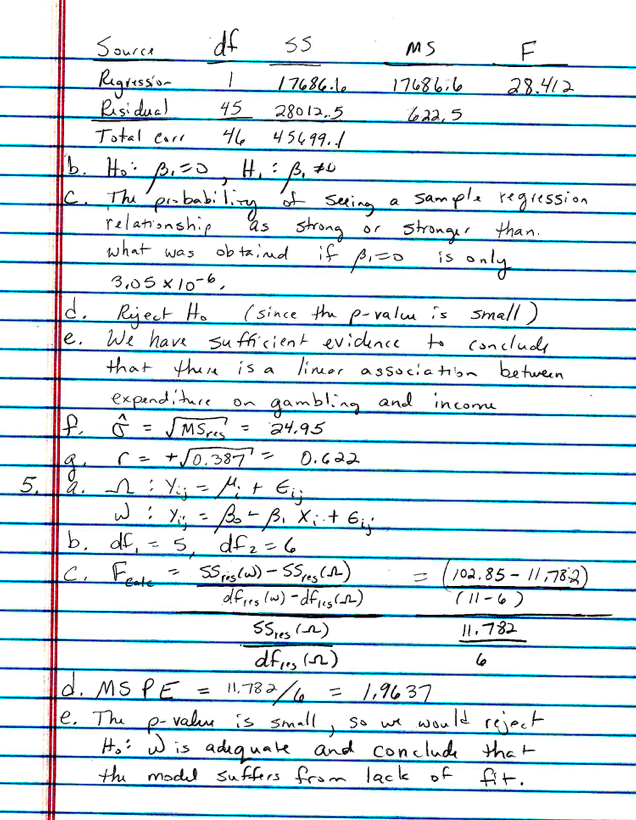 Source df SS MS F
Regression 1 17686.6 17686.6 28.412
Residual 45 28012.5 622.5
Total corr 46 45699.1
b. H₀: β₁=0, H₁: β₁≠0
c. The probability of seeing a sample regression
relationship as strong or stronger than
what was obtained if β₁=0 is only
3.05 × 10⁻⁶.
d. Reject H₀ (since the p-value is small)
e. We have sufficient evidence to conclude
that there is a linear association between
expenditure on gambling and income
f. σ̂ = √MSres = 24.95
g. r = +√0.387 = 0.622
5. a. Ω : Yij = μi + εij
ω : Yij = β₀ - β₁ Xi + εij
b. df₁ = 5, df₂ = 6
c. Fcalc = SSres(ω) - SSres(Ω) = (102.85 - 11.782)
dfres(ω) - dfres(Ω) (11-6)
SSres(Ω) 11.782
dfres(Ω) 6
d. MSPE = 11.782/6 = 1.9637
e. The p-value is small, so we would reject
H₀: ω is adequate and conclude that
the model suffers from lack of fit.